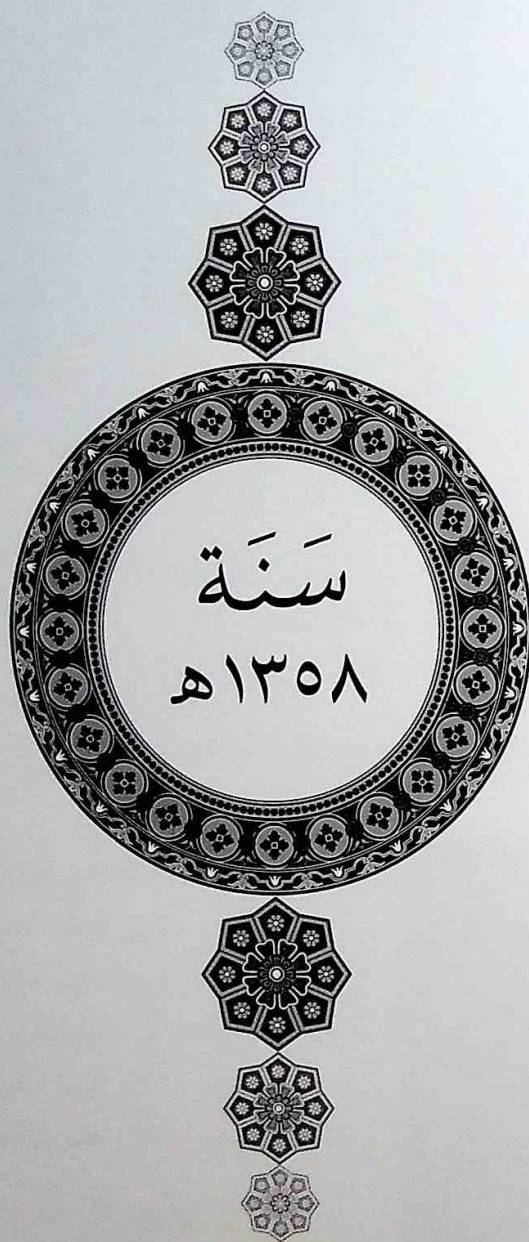 سَنَة
١٣٥٨ه